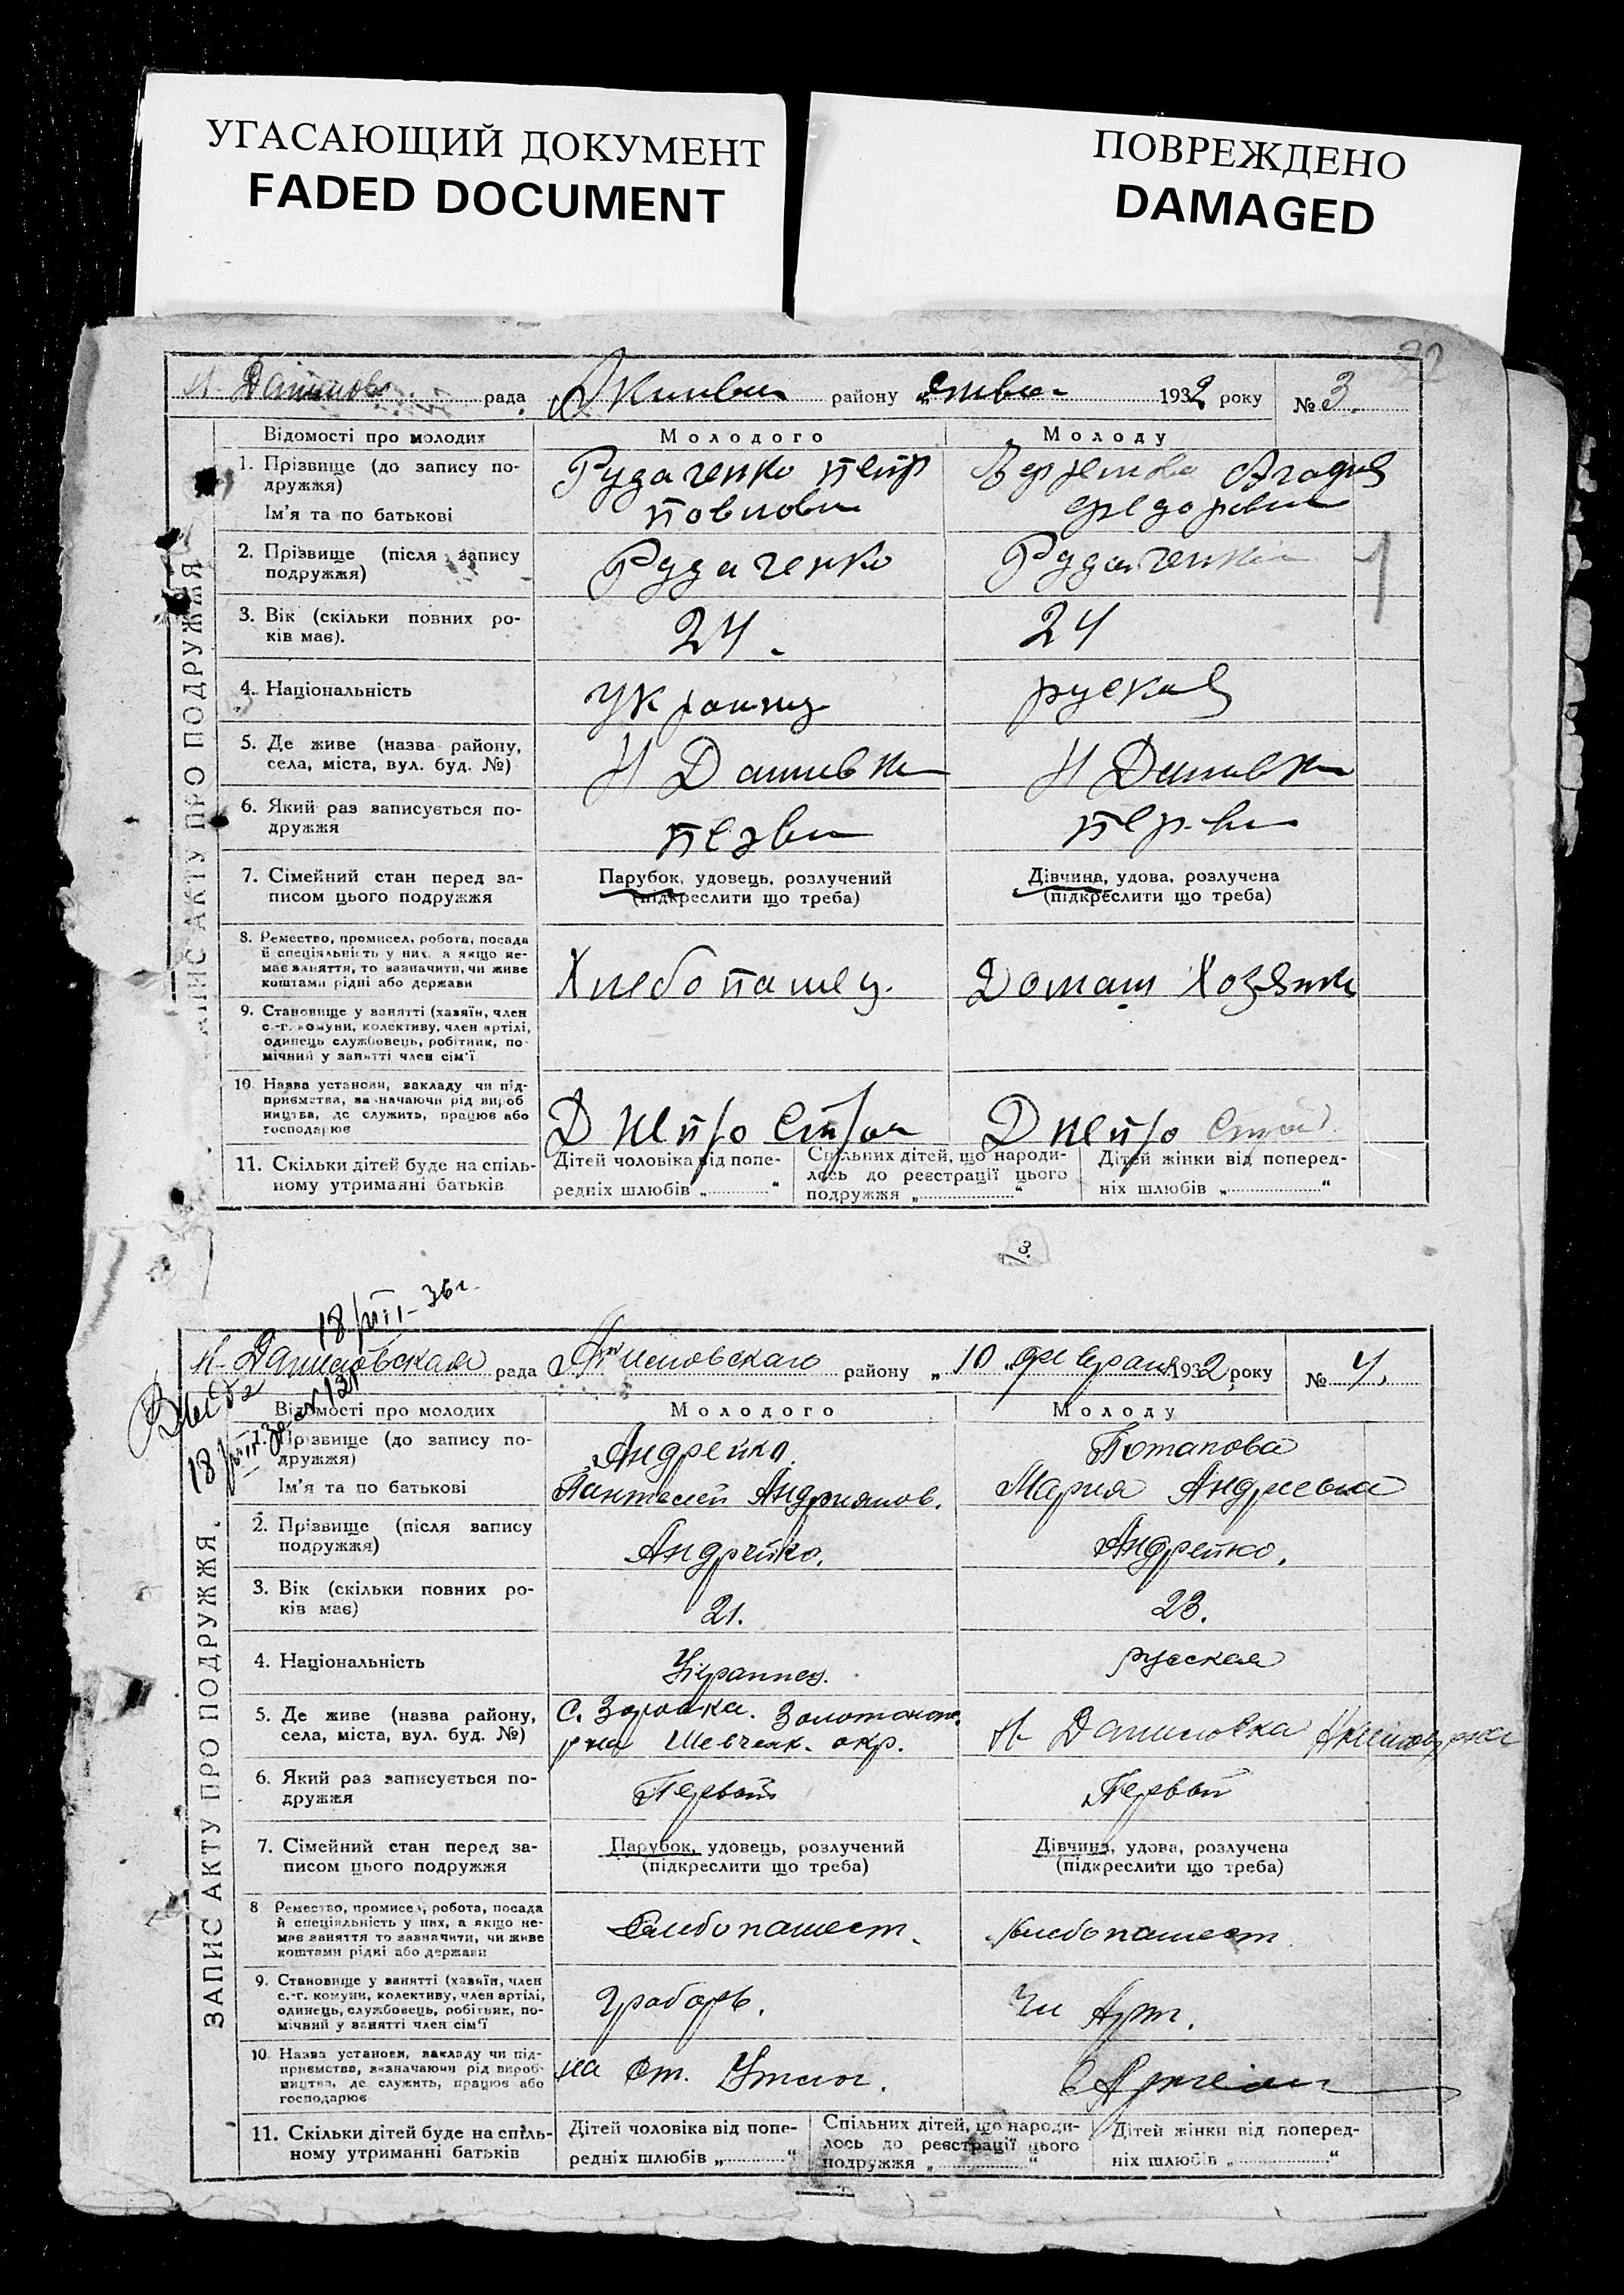 УГАСАЮЩИЙ ДОКУМЕНТ
FADED DOCUMENT
ПОВРЕЖДЕНО
DAMAGED
Н- рада району 1932 року № 3.
Відомості про молодих Молодого Молоду
1. Прізвище (до запису по-
дружжя)
Ім'я та по батькові
Рудаченко Петр
Федоровна
2. Прізвище (після запису
подружжя)
Рудаченко
Рудаченко
3. Вік (скільки повних ро-
ків має).
24.
24
4. Національність
Украинц
руская
5. Де живе (назва району,
села, міста, вул. буд. №)
Н
Н
6. Який раз записується по-
дружжя
7. Сімейний стан перед за-
писом цього подружжя
Парубок, удовець, розлучений
(підкреслити що треба)
Дівчина, удова, розлучена
(підкреслити що треба)
8. Ремество, промисел, робота, посада
й спеціяльність у них, а якщо не-
має заняття, то зазначити, чи живе
коштами рідні або держави
Хлебопашец.
Домаш Хозяйка
9. Становище у занятті (хазяїн, член
с.-г. комуни, колективу, член артілі,
одинець службовець, робітник, по-
мічний у занятті член сім'ї
10. Назва установи, закладу чи під-
приємства, зазначаючи рід вироб
ництва, де служить, працює або
господарює
Днепрострой
Днепрострой
11. Скільки дітей буде на спіль-
ному утриманні батьків
Дітей чоловіка від попе-
редніх шлюбів „ “
Спільних дітей, що народи-
лось до реєстрації цього
подружжя „ “
Дітей жінки від поперед-
ніх шлюбів „ “
ЗАПИС АКТУ ПРО ПОДРУЖЖЯ
3.
18/VIII-36г.
Н-Даниловская рада Акимовского району „10 февраля 1932 року № 4.
Відомості про молодих Молодого Молоду
1. Прізвище (до запису по-
дружжя)
Ім'я та по батькові
Андрейко
Пантелей Андриянов.
Потапова
Мария Андреевна
2. Прізвище (після запису
подружжя)
Андрейко.
Андрейко.
3. Вік (скільки повних ро-
ків має)
21.
23.
4. Національність
Украинец.
русская
5. Де живе (назва району,
села, міста, вул. буд. №)
с. Золотонош.
р-на Шевченк. окр.
Н- Даниловка Акимов. р-на
6. Який раз записується по-
дружжя
Первый
Первый
7. Сімейний стан перед за-
писом цього подружжя
Парубок, удовець, розлучений
(підкреслити що треба)
Дівчина, удова, розлучена
(підкреслити що треба)
8 Ремество, промисел, робота, посада
й спеціяльність у них, а якщо не-
має заняття то зазначити, чи живе
коштами рідні або держави
Хлебопашест.
хлебопашест
9. Становище у занятті (хазяїн, член
с.-г. комуни, колективу, член артілі,
одинець, службовець, робітник, по-
мічний у занятті член сім'ї
Грабарь.
Чл Арт.
10. Назва установи, закладу чи під-
приємства, зазначаючи рід вироб-
ництва, де служить, працює або
господарює
на ст.
в Артели
11. Скільки дітей буде на спіль-
ному утриманні батьків
Дітей чоловіка від попе-
редніх шлюбів „ “
Спільних дітей, що народи-
лось до реєстрації цього
подружжя „ “
Дітей жінки від поперед-
ніх шлюбів „ “
ЗАПИС АКТУ ПРО ПОДРУЖЖЯ.